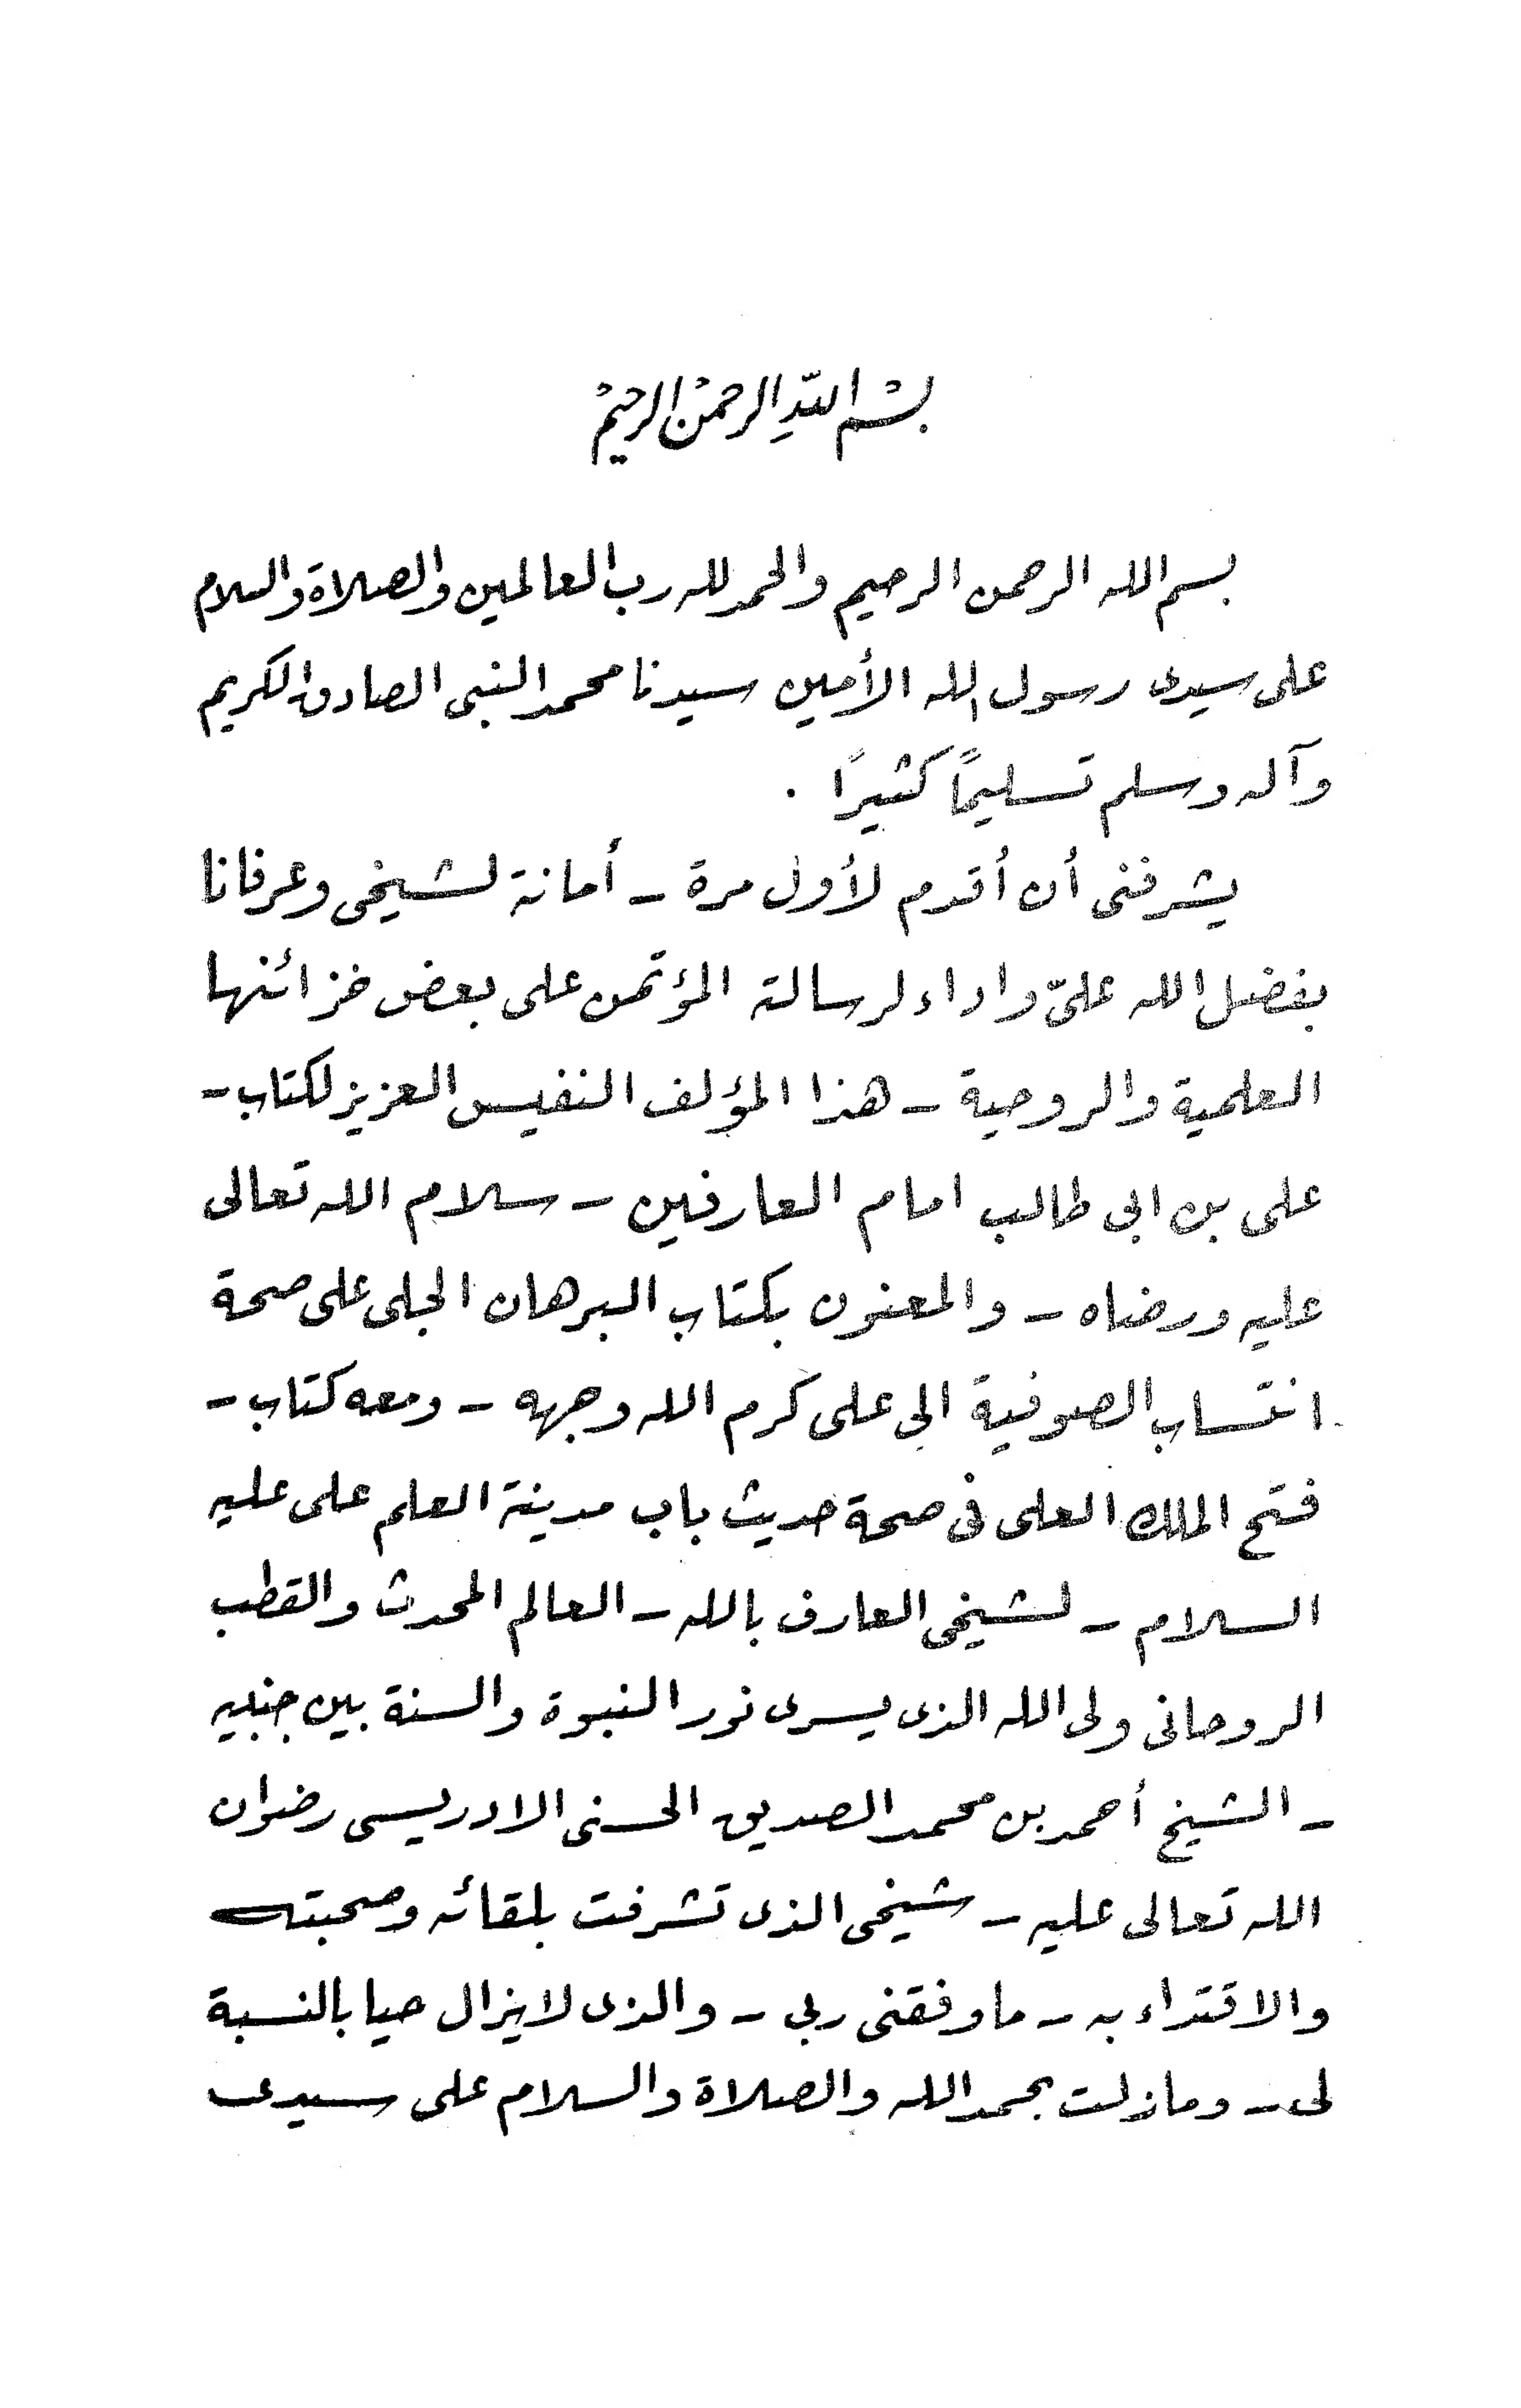 بسْم اللّهِ الرحمنْ الرحيمْ
بسم الله الرحمن الرحيم والحمد لله رب العالمين والصلاة والسلام
على سيدى رسول الله الأمين سيدنا محمد النبى الصادق الكريم
وآله وسلم تسليمًا كثيرًا .
يشرفنى أن أقدم لأول مرة - أمانة لشيخى وعرفانا
بفضل الله علىّ واداء لرسالة المؤتمن على بعض خزائنها
العلمية والروحية - هذا المؤلف النفيس العزيز لكتاب -
على بن ابى طالب امام العارفين - سلام الله تعالى
عليه ورضاه - والمعنون بكتاب البرهان الجلى على صحة
انتساب الصوفية الى على كرم الله وجهه - ومعه كتاب -
فتح الملك العلى فى صحة حديث باب مدينة العلم على عليه
السلام - لشيخى العارف بالله - العالم المحدث والقطب
الروحانى ولى الله الذى يسرى نور النبوة والسنة بين جنبيه
- الشيخ أحمد بن محمد الصديق الحسنى الادريسى رضوان
الله تعالى عليه - شيخى الذى تشرفت بلقائه وصحبته
والاقتداء به - ما وفقنى ربى - والذى لايزال حيا بالنسبة
لى - ومازلت بحمد الله والصلاة والسلام على سيدى